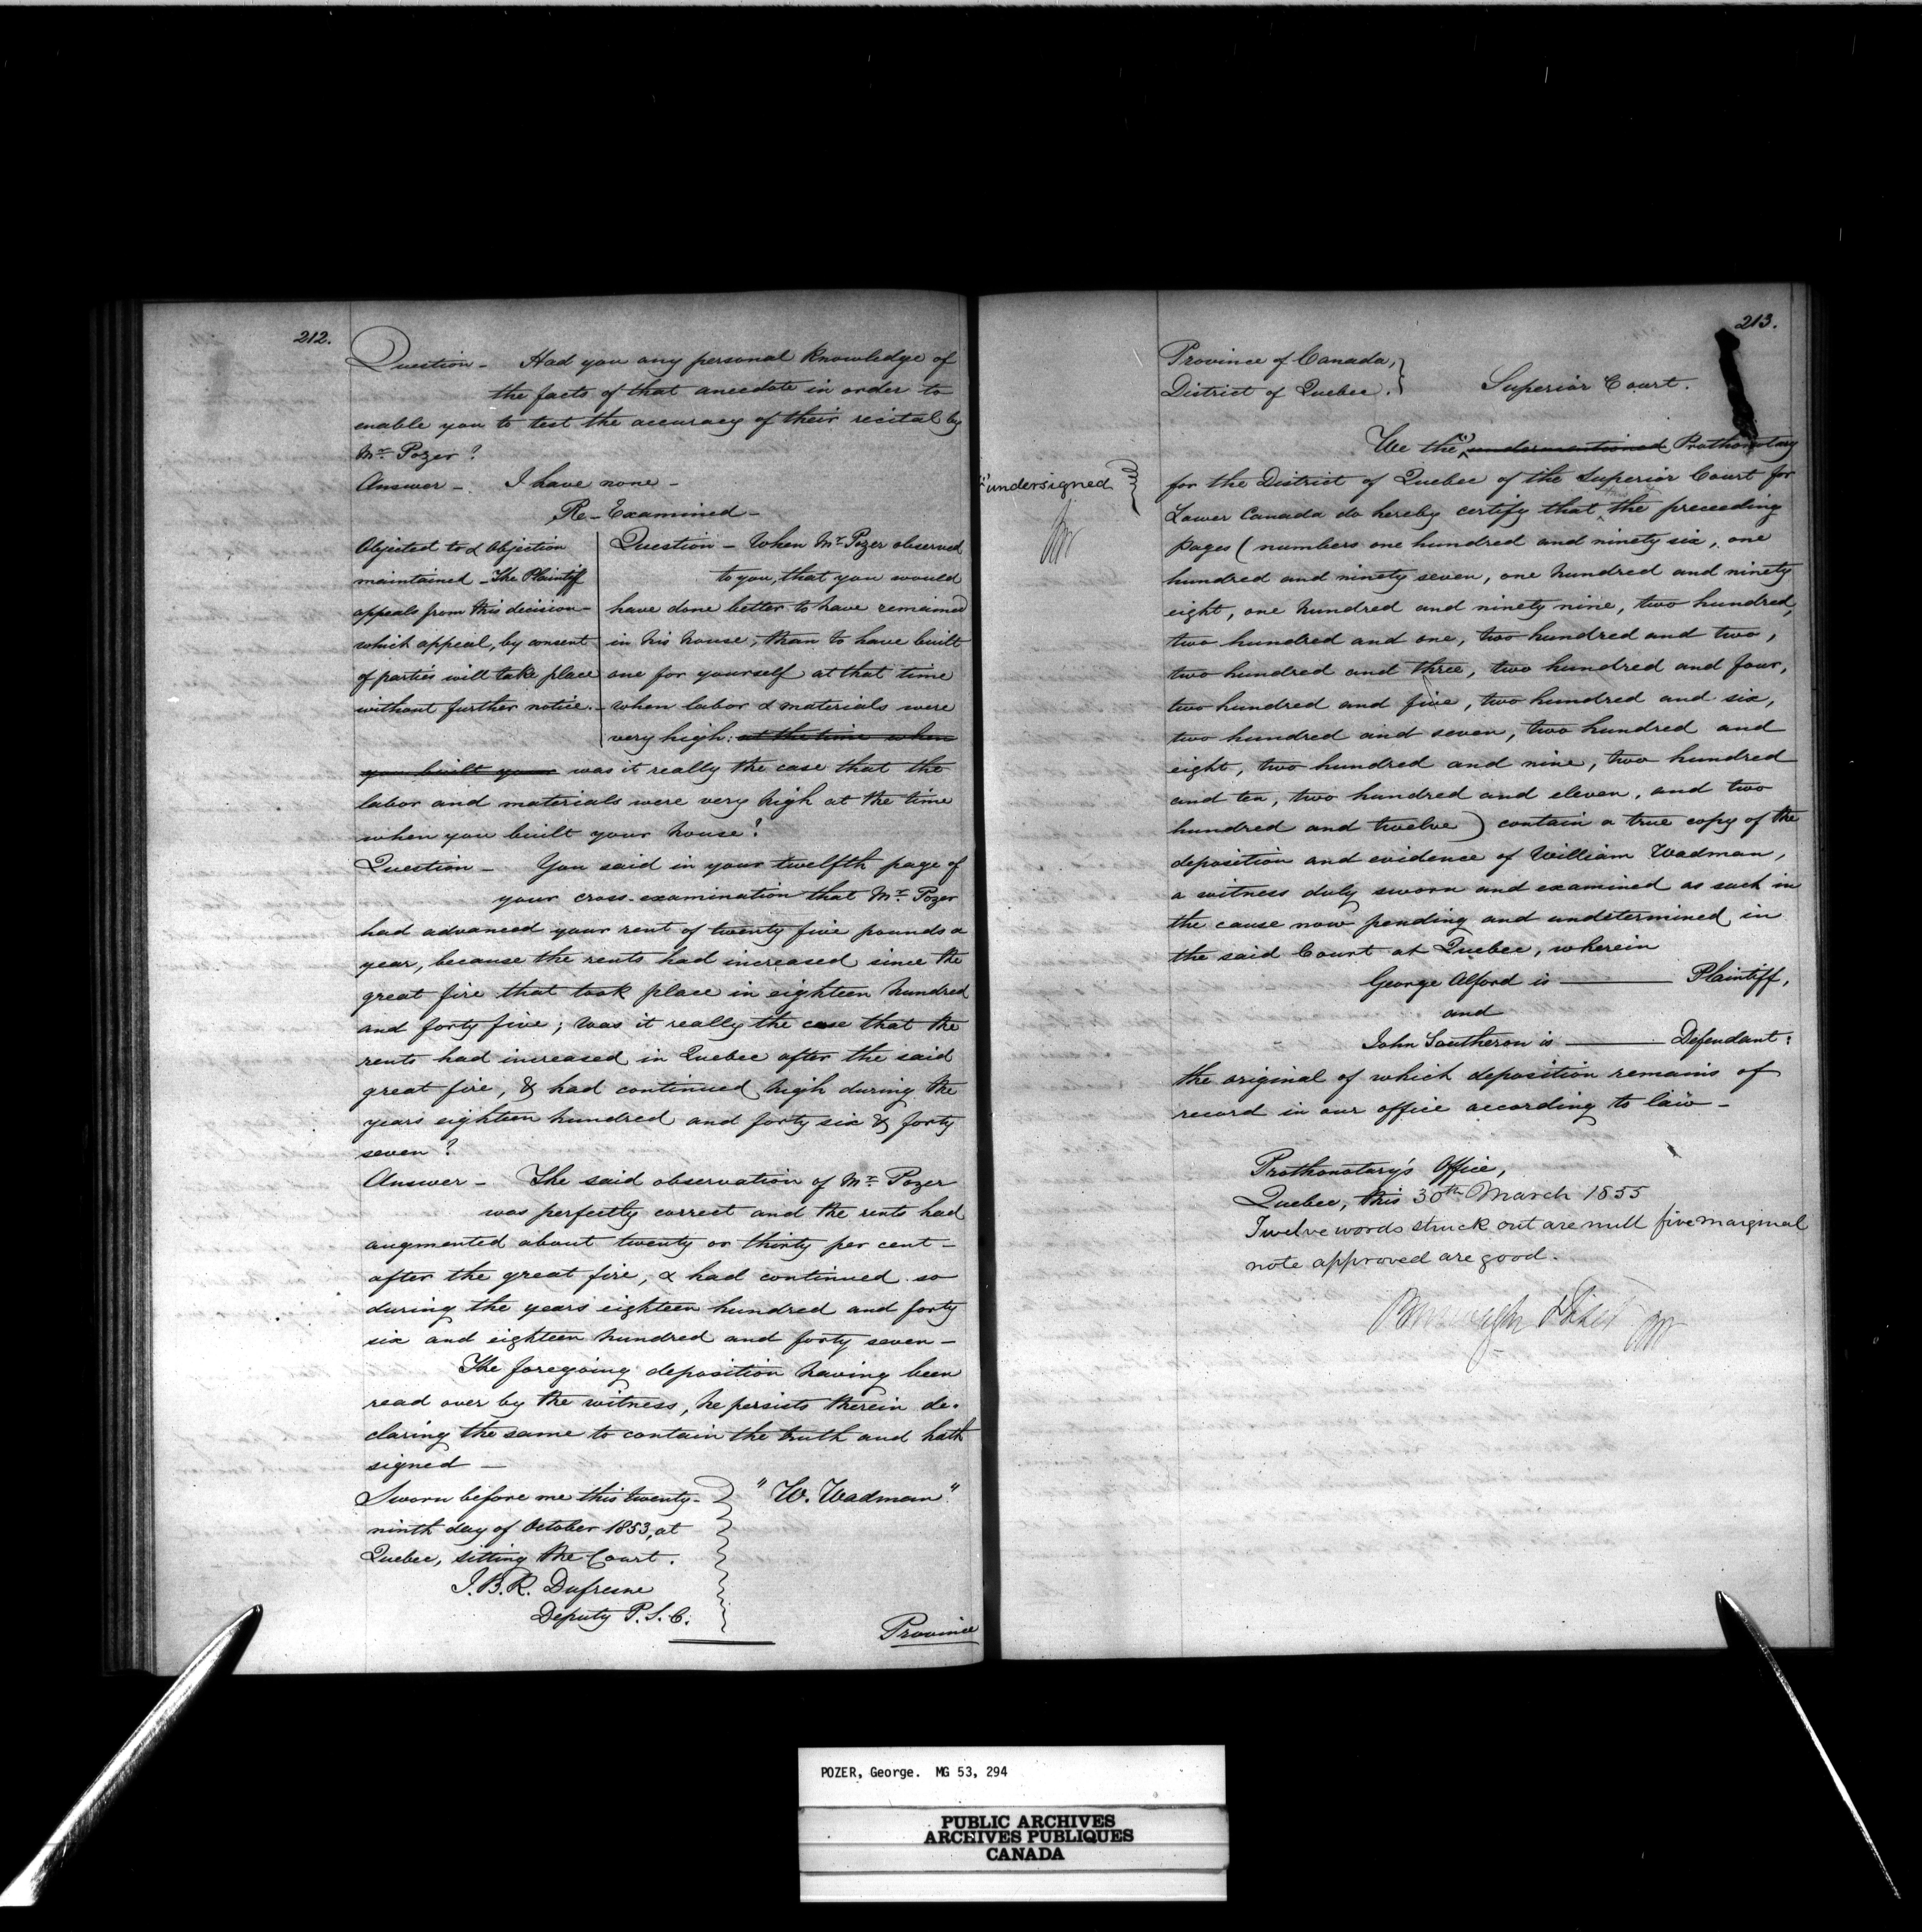 212.
Question - Had you any personal knowledge of
the facts of that anecdote in order to
enable you to test the accuracy of their recital by
Mr. Pozer?
Answer - I have none -
Re-Examined -
Objected to & Objection
maintained - The Plaintiff
appeals from this decision -
which appeal, by consent
of parties will take place
without further notice. -
Question - When Mr. Pozer observed
to you, that you would
have done better to have remained
in his house, than to have built
one for yourself at that time
when labor & materials were
very high: at the time when
you built your was it really the case that the
labor and materials were very high at the time
when you built your house?
Question - You said in your twelfth page of
your cross-examination that Mr. Pozer
had advanced your rent of twenty five pounds a
year, because the rents had increased since the
great fire that took place in eighteen hundred
and forty five; was it really the case that the
rents had increased in Quebec after the said
great fire, & had continued high during the
years eighteen hundred and forty six & forty
seven?
Answer - The said observation of Mr. Pozer
was perfectly correct and the rents had
augmented about twenty or thirty per cent -
after the great fire, & had continued so
during the years eighteen hundred and forty
six and eighteen hundred and forty seven -
The foregoing deposition having been
read over by the witness, he persists therein de-
claring the same to contain the truth and hath
signed -
Sworn before me this twenty-
ninth day of October 1853, at
Quebec, sitting the Court.
J.B.R. Dufresne
Deputy P.S.C.
"W. Wadman"
Province
213.
Province of Canada,
District of Quebec.
Superior Court.
We the undermentioned Prothonotary
undersigned
for the District of Quebec of the Superior Court for
Lower Canada do hereby certify that the preceeding
pages (numbers one hundred and ninety six, one
hundred and ninety seven, one hundred and ninety
eight, one hundred and ninety nine, two hundred,
two hundred and one, two hundred and two,
two hundred and three, two hundred and four,
two hundred and five, two hundred and six,
two hundred and seven, two hundred and
eight, two hundred and nine, two hundred
and ten, two hundred and eleven, and two
hundred and twelve) contain a true copy of the
deposition and evidence of William Wadman,
a witness duly sworn and examined as such in
the cause now pending and undetermined in
the said Court at Quebec, wherein
George Alford is ——— Plaintiff,
and
John Southeron is ——— Defendant:
the original of which deposition remains of
record in our office according to law -
Prothonotary's Office,
Quebec, this 30th March 1855
Twelve words struck out are null five marginal
note approved are good.
POZER, George. MG 53, 294
PUBLIC ARCHIVES
ARCHIVES PUBLIQUES
CANADA